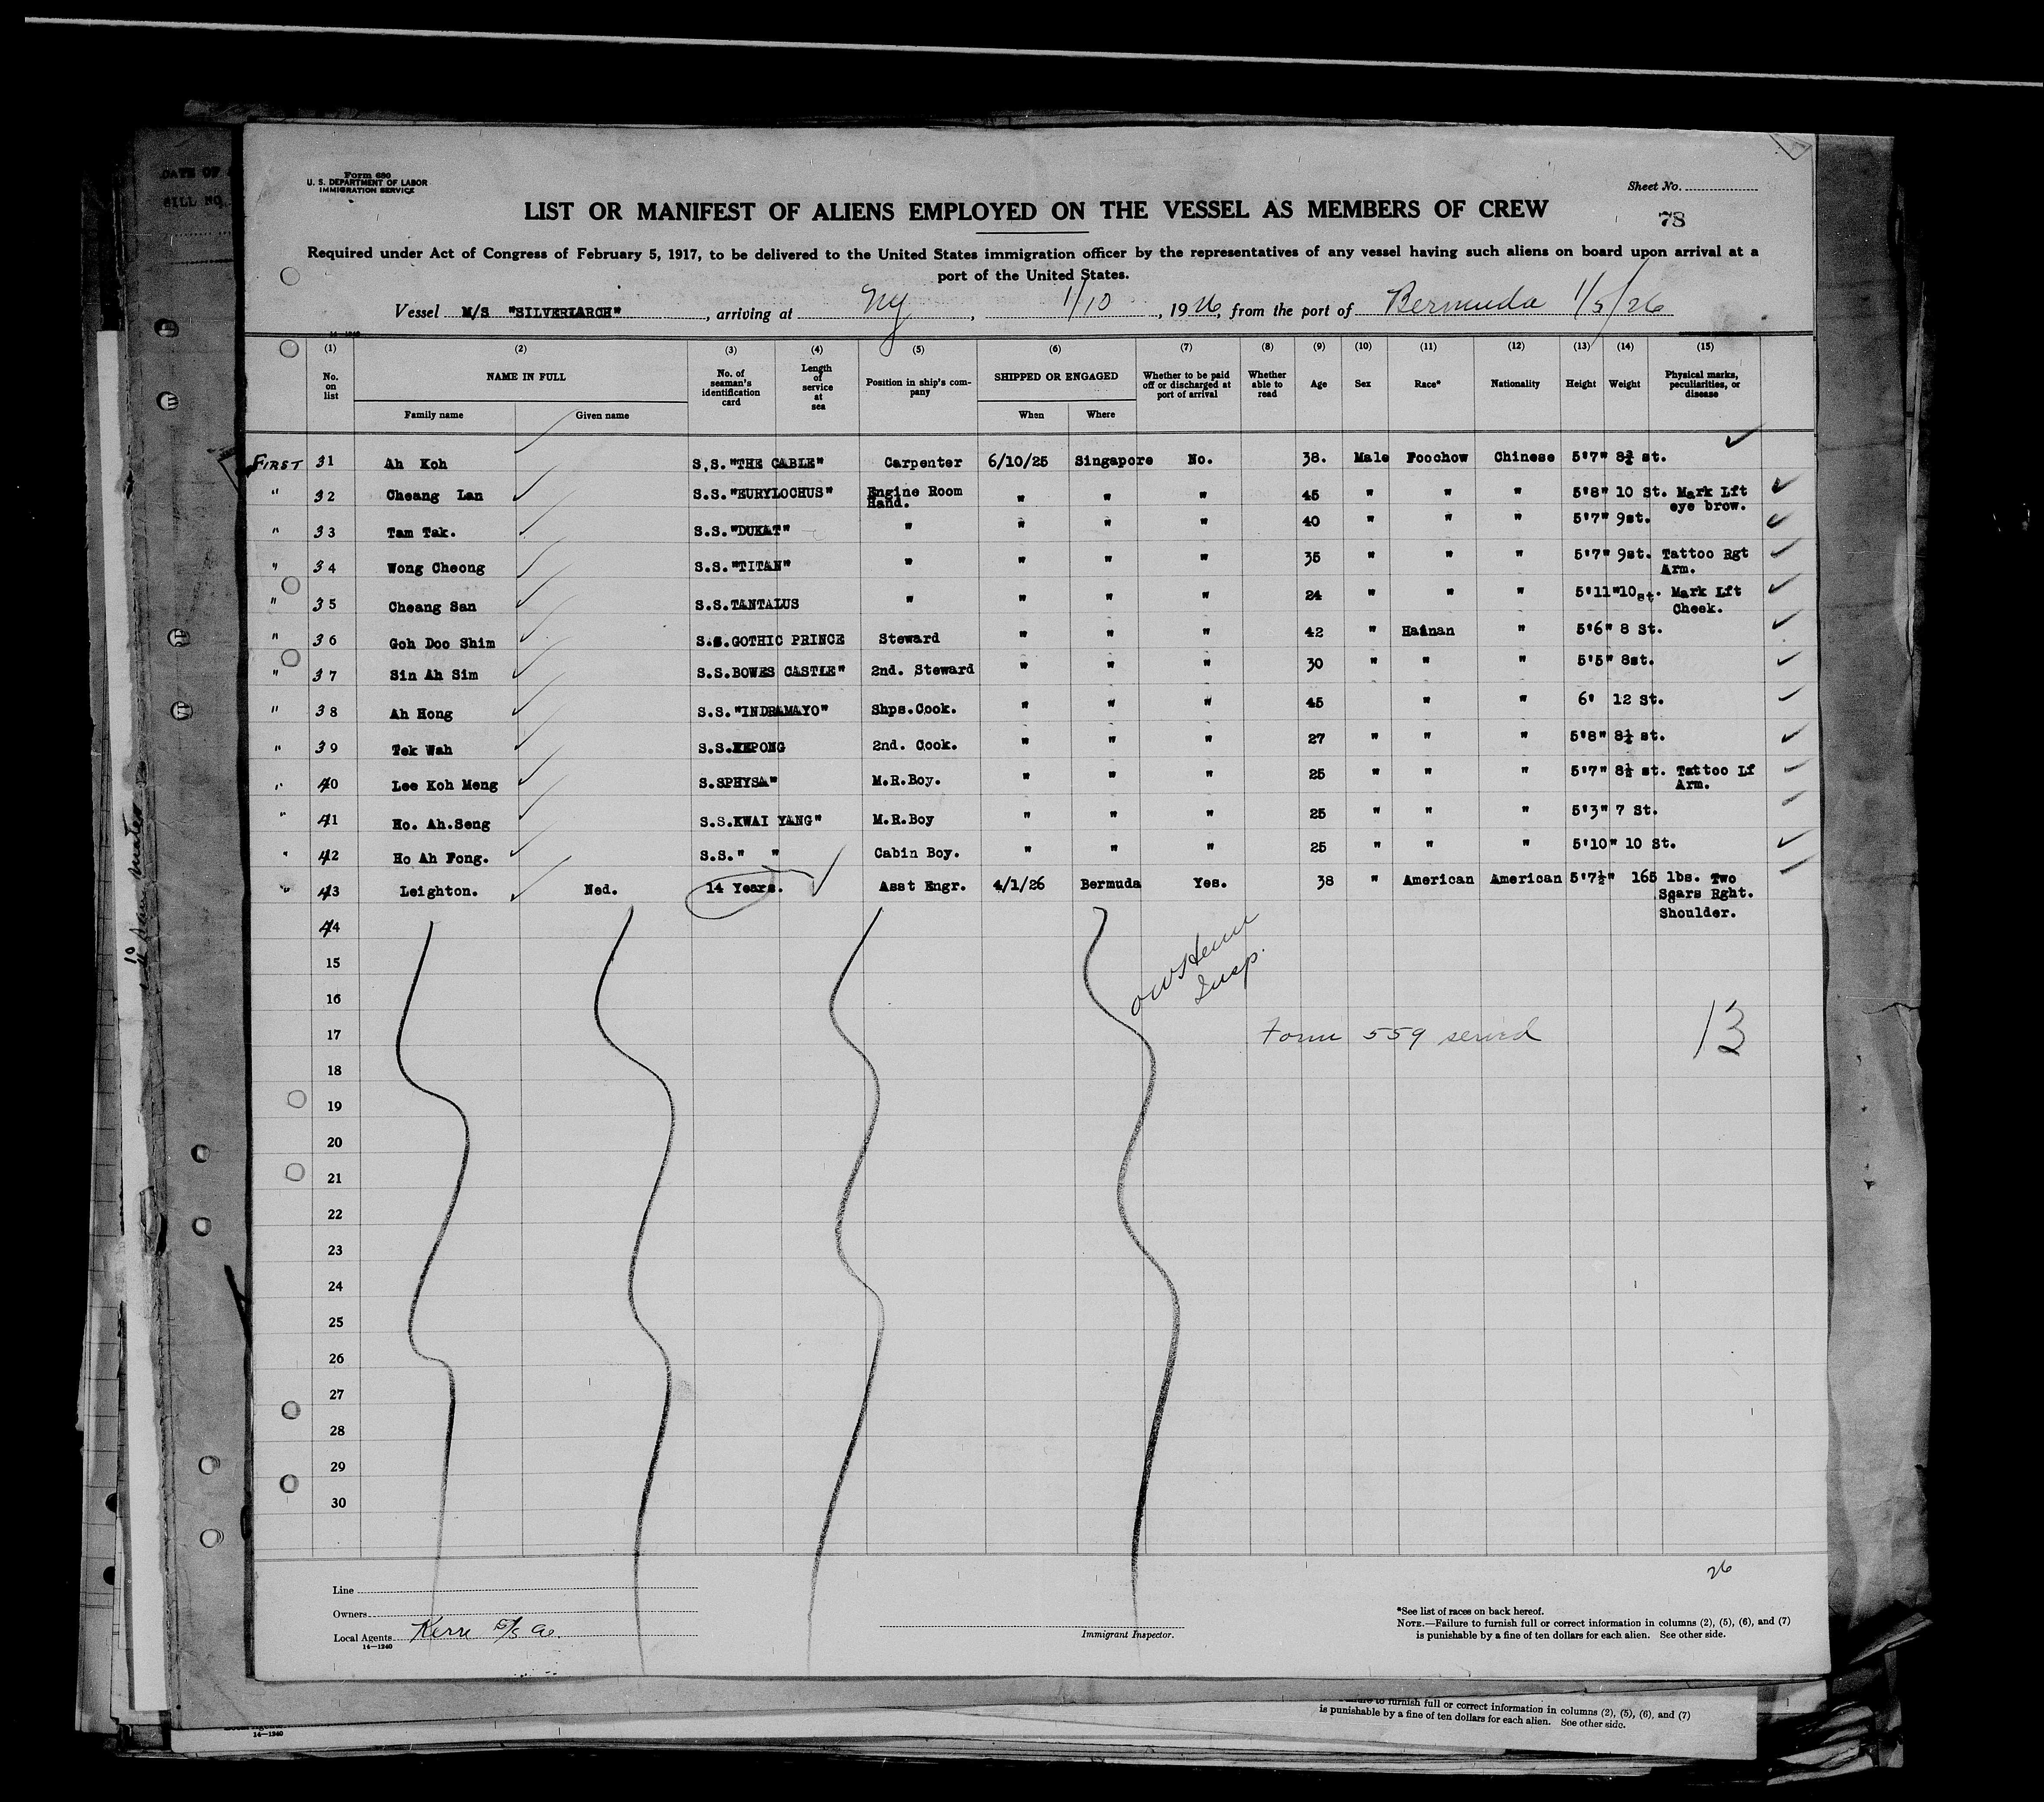 Form 680
U. S. DEPARTMENT OF LABOR
IMMIGRATION SERVICE
Sheet No.
LIST OR MANIFEST OF ALIENS EMPLOYED ON THE VESSEL AS MEMBERS OF CREW
78
Required under Act of Congress of February 5, 1917, to be delivered to the United States immigration officer by the representatives of any vessel having such aliens on board upon arrival at a
port of the United States.
Vessel M/S "SILVERLARCH", arriving at NY, 1/10, 1926, from the port of Bermuda 1/5/26
14-1240
(1) (2) (3) (4) (5) (6) (7) (8) (9) (10) (11) (12) (13) (14) (15)
No. on list NAME IN FULL No. of seaman's identification card Length of service at sea Position in ship's company SHIPPED OR ENGAGED Whether to be paid off or discharged at port of arrival Whether able to read Age Sex Race* Nationality Height Weight Physical marks, peculiarities, or disease
Family name Given name When Where
FIRST 31 Ah Koh S.S."THE CABLE" Carpenter 6/10/25 Singapore No. 38. Male Foochow Chinese 5'7" 8¾ st.
" 32 Cheang Lan S.S."EURYLOCHUS" Engine Room Hand. " " " 45 " " " 5'8" 10 St. Mark Lft eye brow.
" 33 Tam Tak. S.S."DUKAT" " " " " 40 " " " 5'7" 9st.
" 34 Wong Cheong S.S."TITAN" " " " " 35 " " " 5'7" 9st. Tattoo Rgt Arm.
" 35 Cheang San S.S.TANTALUS " " " " 24 " " " 5'11" 10st. Mark Lft Cheek.
" 36 Goh Doo Shim S.S.GOTHIC PRINCE Steward " " " 42 " Hainan " 5'6" 8 St.
" 37 Sin Ah Sim S.S.BOWES CASTLE" 2nd. Steward " " " 30 " " " 5'5" 8st.
" 38 Ah Hong S.S."INDRAMAYO" Shps.Cook. " " " 45 " " 6' 12 St.
" 39 Tek Wah S.S.KEPONG 2nd. Cook. " " " 27 " " " 5'8" 8½ st.
" 40 Lee Koh Meng S.SPHYSA" M.R.Boy. " " " 25 " " " 5'7" 8½ st. Tattoo Lf Arm.
" 41 Ho. Ah.Seng S.S.KWAI YANG" M.R.Boy " " " 25 " " " 5'3" 7 St.
" 42 Ho Ah Fong. S.S." " Cabin Boy. " " " 25 " " " 5'10" 10 St.
" 43 Leighton. Ned. 14 Years. Asst Engr. 4/1/26 Bermuda Yes. 38 " American American 5'7½" 165 lbs. Two Scars Rght. Shoulder.
44
15
16
Insp.
17
Form 559 served
13
18
19
20
21
22
23
24
25
26
27
28
29
30
26
Line
Owners
Local Agents Kerr S/S Co.
14-1240
Immigrant Inspector.
*See list of races on back hereof.
NOTE.—Failure to furnish full or correct information in columns (2), (5), (6), and (7)
is punishable by a fine of ten dollars for each alien. See other side.
to furnish full or correct information in columns (2), (5), (6), and (7)
is punishable by a fine of ten dollars for each alien. See other side.
14-1240